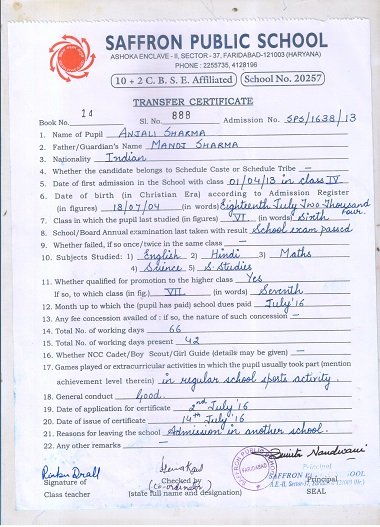 SAFFRON PUBLIC SCHOOL
ASHOKA ENCLAVE - II, SECTOR - 37, FARIDABAD-121003 (HARYANA)
PHONE : 2255735, 4128196
10 + 2 C. B. S. E. Affiliated School No. 20257
TRANSFER CERTIFICATE
Book No. 14 Sl. No. 888 Admission No. SPS/1638/13
1. Name of Pupil ANJALI SHARMA
2. Father/Guardian's Name MANOJ SHARMA
3. Nationality Indian
4. Whether the candidate belongs to Schedule Caste or Schedule Tribe —
5. Date of first admission in the School with class 01/04/13 in class IV
6. Date of birth (in Christian Era) according to Admission Register
(in figures) 18/07/04 (in words) Eighteenth July Two Thousand four.
7. Class in which the pupil last studied (in figures) VI (in words) Sixth
8. School/Board Annual examination last taken with result School exam passed
9. Whether failed, if so once/twice in the same class —
10. Subjects Studied : 1) English 2) Hindi 3) Maths
4) Science 5) S. Studies
11. Whether qualified for promotion to the higher class Yes
If so, to which class (in fig.) VII (in words) Seventh
12. Month up to which the (pupil has paid) school dues paid July'16
13. Any fee concession availed of : if so, the nature of such concession —
14. Total No. of working days 66
15. Total No. of working days present 42
16. Whether NCC Cadet/Boy Scout/Girl Guide (details may be given) —
17. Games played or extracurricular activities in which the pupil usually took part (mention
achievement level therein) in regular school sports activity.
18. General conduct Good.
19. Date of application for certificate 2nd July'16
20. Date of issue of certificate 14th July'16
21. Reasons for leaving the school Admission in another school.
22. Any other remarks —
Signature of
Class teacher
Checked by
(Co-ordinator)
(state full name and designation)
SAFFRON PUBLIC SCHOOL
FARIDABAD
Principal
Principal
SEAL